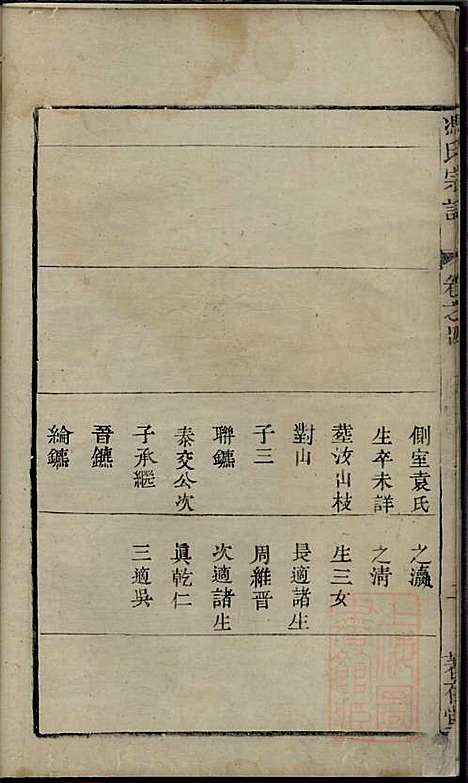 馮氏宗譜
卷之四
側室袁氏
生卒未詳
葬汝山枝
對山
子三
聯鑣
泰交公次
子承繼
晉鑣
綸鑣
之瀛
之清
生三女
長適諸生
周維晉
次適諸生
眞乾仁
三適吳
上海圖書館藏